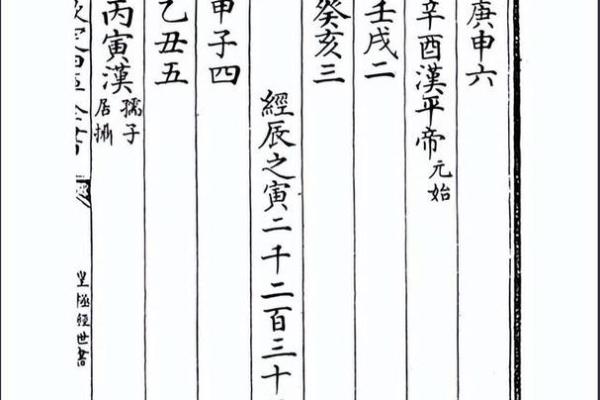 庚申六
辛酉漢平帝元始
壬戌二
癸亥三
經辰之寅二千二百三十
甲子四
乙丑五
丙寅漢孺子居攝
皇極經世書